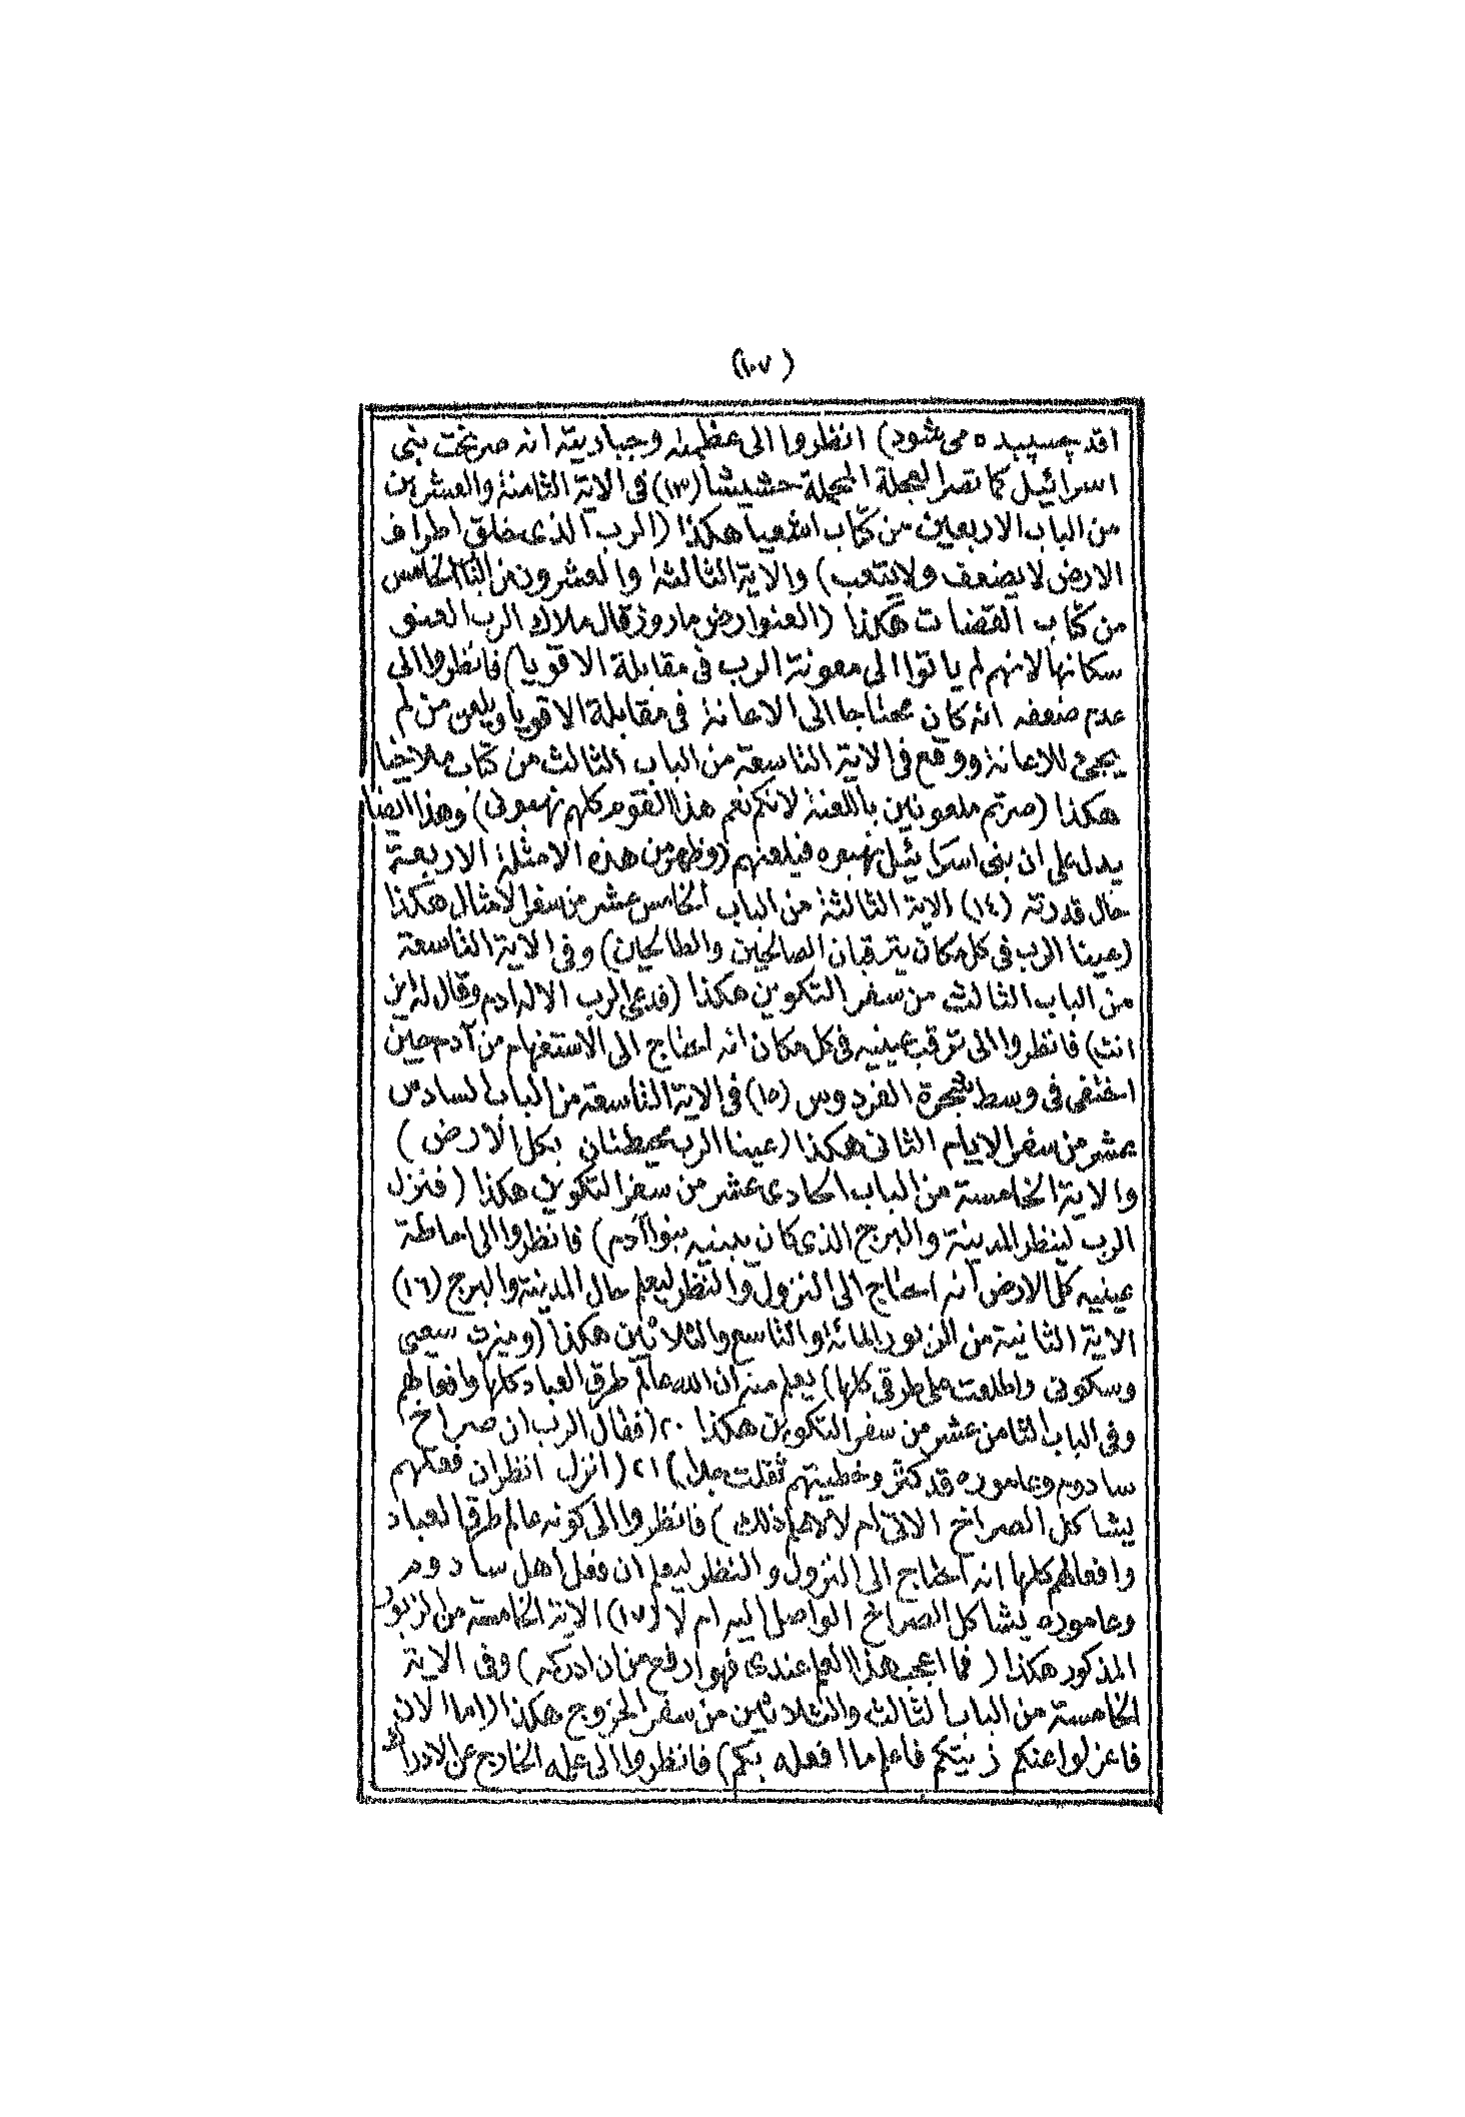 (١٠٧)
اقد چسپیده می شود) انظروا الى عظمته وجباريته انه صر تحت بنى
اسرائيل كما تصر العجلة المحملة حشيشا (١٣) فى الاية الثامنة والعشرين
من الباب الاربعين من كتاب اشعيا هكذا (الرب الذى خلق اطراف
الارض لا يضعف ولا يتعب) والاية الثالثة والعشرون من الباب الخامس
من كتاب القضات هكذا (العنوا ارض ماروز قال ملاك الرب العنو
سكانها لانهم لم ياتوا الى معونة الرب فى مقابلة الاقويا) فانظروا الى
عدم ضعفه انه كان محتاجا الى الاعانة فى مقابلة الاقويا ويلعن من لم
يجئ للاعانة ووقع فى الاية التاسعة من الباب الثالث من كتاب ملاخيا
هكذا (صرتم ملعونين باللعنة لانكم نعم هذا القوم كلهم تهبونى) وهذا ايضا
يدل على ان بنى اسرائيل نهبوه فيلعنهم (وظهر من هذه الامثلة الاربعة
حال قدرته (١٤) الاية الثالثة من الباب الخامس عشر من سفر الامثال هكذا
(عينا الرب فى كل مكان يترقبان الصالحين والطالحين) وفى الاية التاسعة
من الباب الثالث من سفر التكوين هكذا (فدعى الرب الاله ادم وقال له اين
انت) فانظروا الى ترقب عينيه فى كل مكان انه احتاج الى الاستفهام من آدم حين
اختفى فى وسط شجرة الفردوس (١٥) فى الاية التاسعة من الباب السادس
عشر من سفر الايام الثانى هكذا (عينا الرب محيطتان بكل الارض)
والاية الخامسة من الباب الحادى عشر من سفر التكوين هكذا (فنزل
الرب لينظر المدينة والبرج الذى كان يبنيه بنوا آدم) فانظروا الى احاطة
عينيه كل الارض انه احتاج الى النزول والنظر ليعلم حال المدينة والبرج (١٦)
الاية الثانية من الزبور المائة والتاسع والثلاثين هكذا (وميزت سعيى
وسكونى واطلعت على طرقى كلها) يعلم منه ان الله عالم طرق العباد كلها وافعالهم
وفى الباب الثامن عشر من سفر التكوين هكذا ٢٠ (فقال الرب ان صراخ
سادوم وعاموره قد كثر وخطيتهم ثقلت جدا) ٢١ (انزل انظر ان فعلهم
يشاكل الصراخ الاتى ام لا لاعلم ذلك) فانظروا الى كونه عالم طرق العباد
وافعالهم كلها انه احتاج الى النزول والنظر ليعلم ان فعل اهل سادوم
وعاموره يشاكل الصراخ الواصل اليه ام لا (١٧) الاية الخامسة من الزبور
المذكور هكذا (فما اعجب هذا العلم عندى فهو ارفع من ان ادركه) وفى الاية
الخامسة من الباب الثالث والثلاثين من سفر الخروج هكذا (اما الان
فاعزلوا عنكم زينتكم فاعلم ما افعله بكم) فانظروا الى علمه الخارج عن الادراك